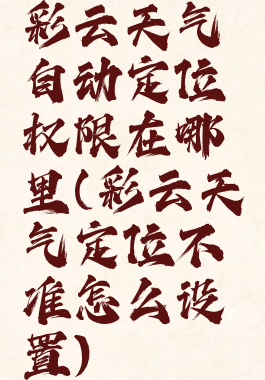 彩云天气
自动定位
权限在哪
里(彩云天
气定位不
准怎么设
置)